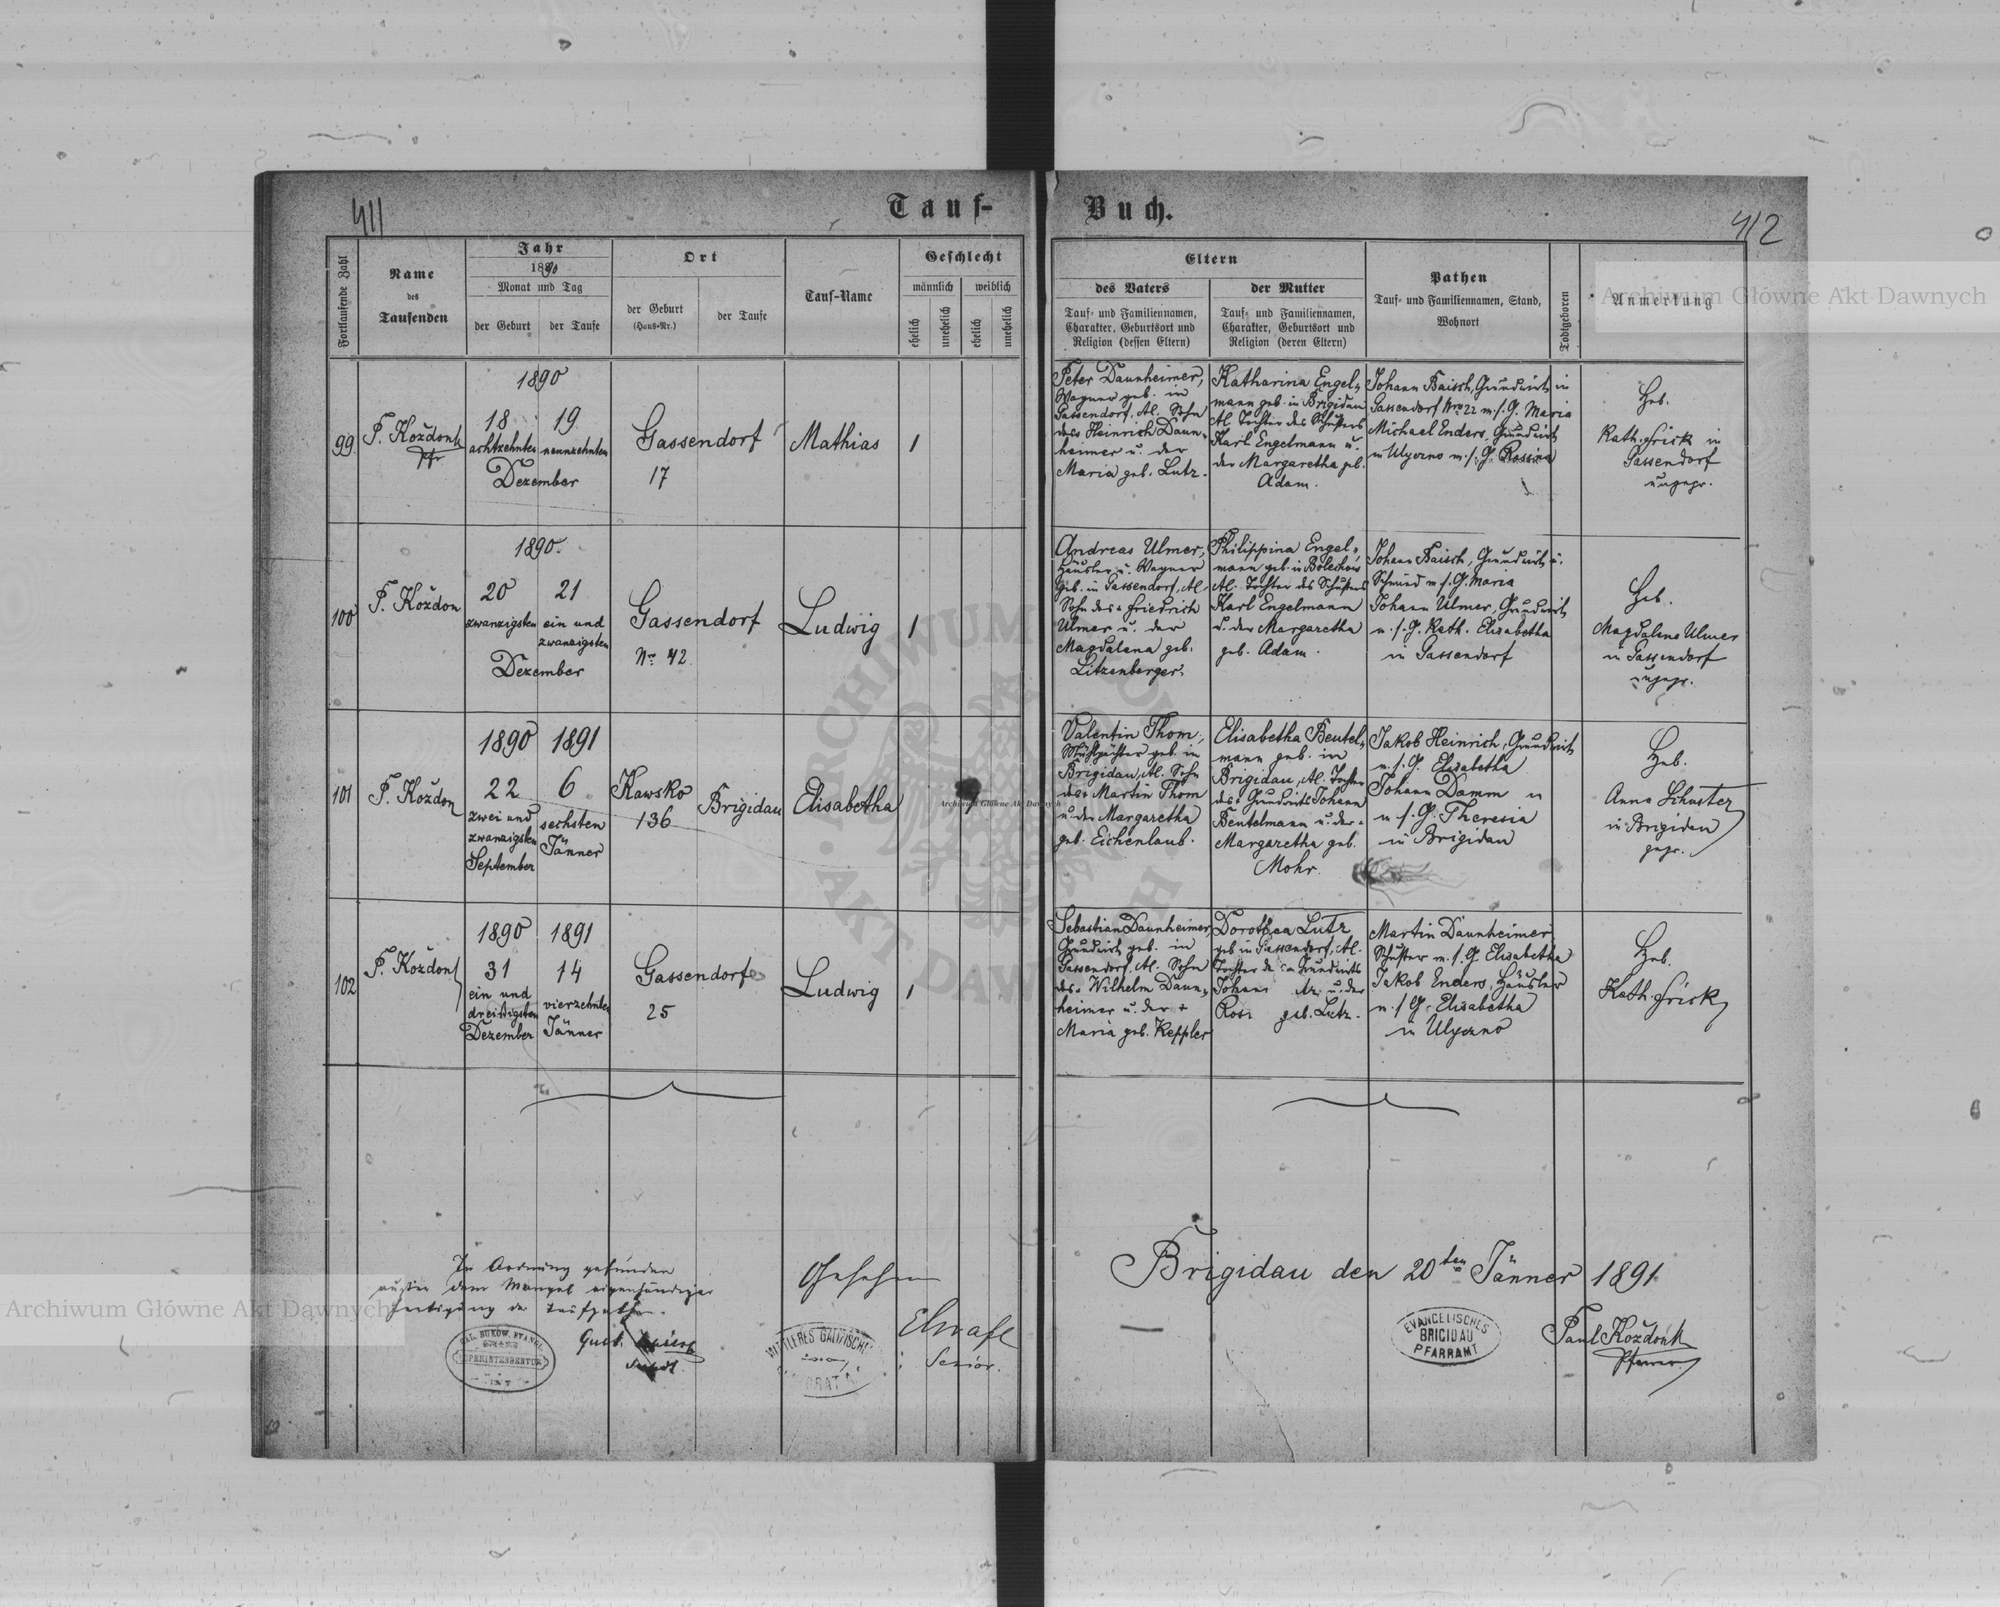 411
Tauf-
Buch.
412
Fortlaufende Zahl
Name
des
Taufenden
Jahr
1890
Monat und Tag
der Geburt
der Taufe
Ort
der Geburt
(Haus-Nr.)
der Taufe
Tauf-Name
Geschlecht
männlich
weiblich
ehelich
unehelich
ehelich
unehelich
Eltern
des Vaters
Tauf- und Familiennamen,
Charakter, Geburtsort und
Religion (dessen Eltern)
der Mutter
Tauf- und Familiennamen,
Charakter, Geburtsort und
Religion (deren Eltern)
Pathen
Tauf- und Familiennamen, Stand,
Wohnort
Todtgeboren
Anmerkung
Archiwum Główne Akt Dawnych
99
P. Koždon
Pfr
1890
18
achtzehnten
19
neunzehnten
Dezember
Gassendorf
17
Mathias
1
Peter Daunheimer,
Wagner geb. in
Gassendorf, Al. Sohn
des Heinrich Daun-
heimer u. der
Maria geb. Lutz.
Katharina Engel-
mann geb. in Brigidau
Al. Tochter des Schusters
Karl Engelmann u.
der Margaretha geb.
Adam.
Johann Baisch, Grundwirt in
Gassendorf Nro 22 m. s. G. Maria
Michael Enders, Grundwirt
in Ulyczno m. s. G. Rosina
Heb.
Kath. Frick in
Gassendorf
ungepr.
100
P. Koždon
1890.
20
zwanzigsten
21
ein und
zwanzigsten
Dezember
Gassendorf
Nr. 42
Ludwig
1
Andreas Ulmer,
Häusler u. Wagner
geb. in Gassendorf, Al.
Sohn des Friedrich
Ulmer u. der
Magdalena geb.
Litzenberger.
Philippina Engel-
mann geb. in Bolechów
Al. Tochter des Schusters
Karl Engelmann
u. der Margaretha
geb. Adam.
Johann Baisch, Grundwirt u.
Schmied m. s. G. Maria
Johann Ulmer, Grundwirt
m. s. G. Kath. Elisabetha
in Gassendorf
Heb.
Magdalena Ulmer
in Gassendorf
ungepr.
101
P. Koždon
1890
22
zwei und
zwanzigsten
September
1891
6
sechsten
Jänner
Kawsko
136
Brigidau
Elisabetha
Valentin Thom,
Mühlpächter geb. in
Brigidau, Al. Sohn
des Martin Thom
u. der Margaretha
geb. Eichenlaub.
Elisabetha Beutel-
mann geb. in
Brigidau, Al. Tochter
des Grundwirts Johann
Beutelmann u. der
Margaretha geb.
Mohr.
Jakob Heinrich, Grundwirt
m. s. G. Elisabetha
Johann Damm
m. s. G. Theresia
in Brigidau
Heb.
Anna Schuster
in Brigidau
gepr.
102
P. Koždon
1890
31
ein und
dreißigsten
Dezember
1891
14
vierzehnten
Jänner
Gassendorf
25
Ludwig
1
Sebastian Daunheimer
Grundwirt geb. in
Gassendorf, Al. Sohn
des Wilhelm Daun-
heimer u. der +
Maria geb. Keppler
Dorothea Lutz
geb in Gassendorf, Al.
Tochter des Grundwirts
Johann u. der
geb. Lutz.
Martin Daunheimer
Schuster m. s. G. Elisabetha
Jakob Enders, Häusler
m. s. G. Elisabetha
in Ulyczno
Heb.
Kath. Frick
In Ordnung gefunden
außer dem Mangel eigenhändiger
Fertigung der Taufpathen.
Gesehen
Senior.
Brigidau den 20ten Jänner 1891
EVANGELISCHES
BRIGIDAU
PFARRAMT
Paul Koždon
Pfarrer
Archiwum Główne Akt Dawnych